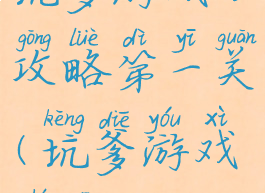 gōng lüè dì yī guān
攻略第一关
kēng diē yóu xì
(坑爹游戏